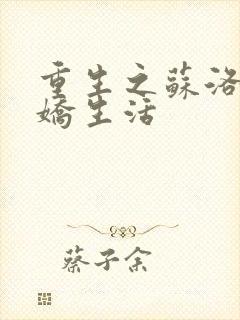 重生之蘇洛
嬌生活
蔡子余